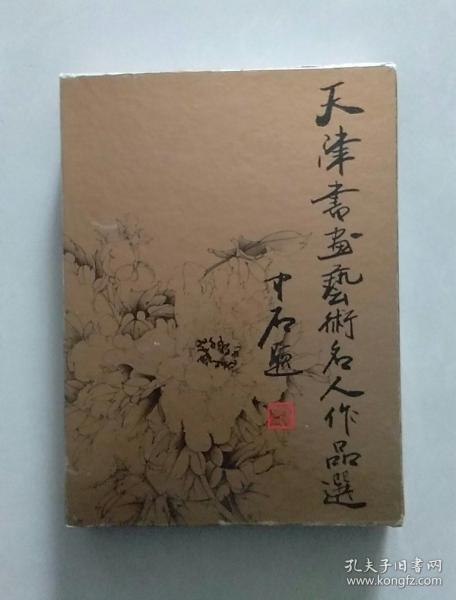 天津書画藝術名人作品選
中石題
孔夫子旧书网
www.kongfz.com